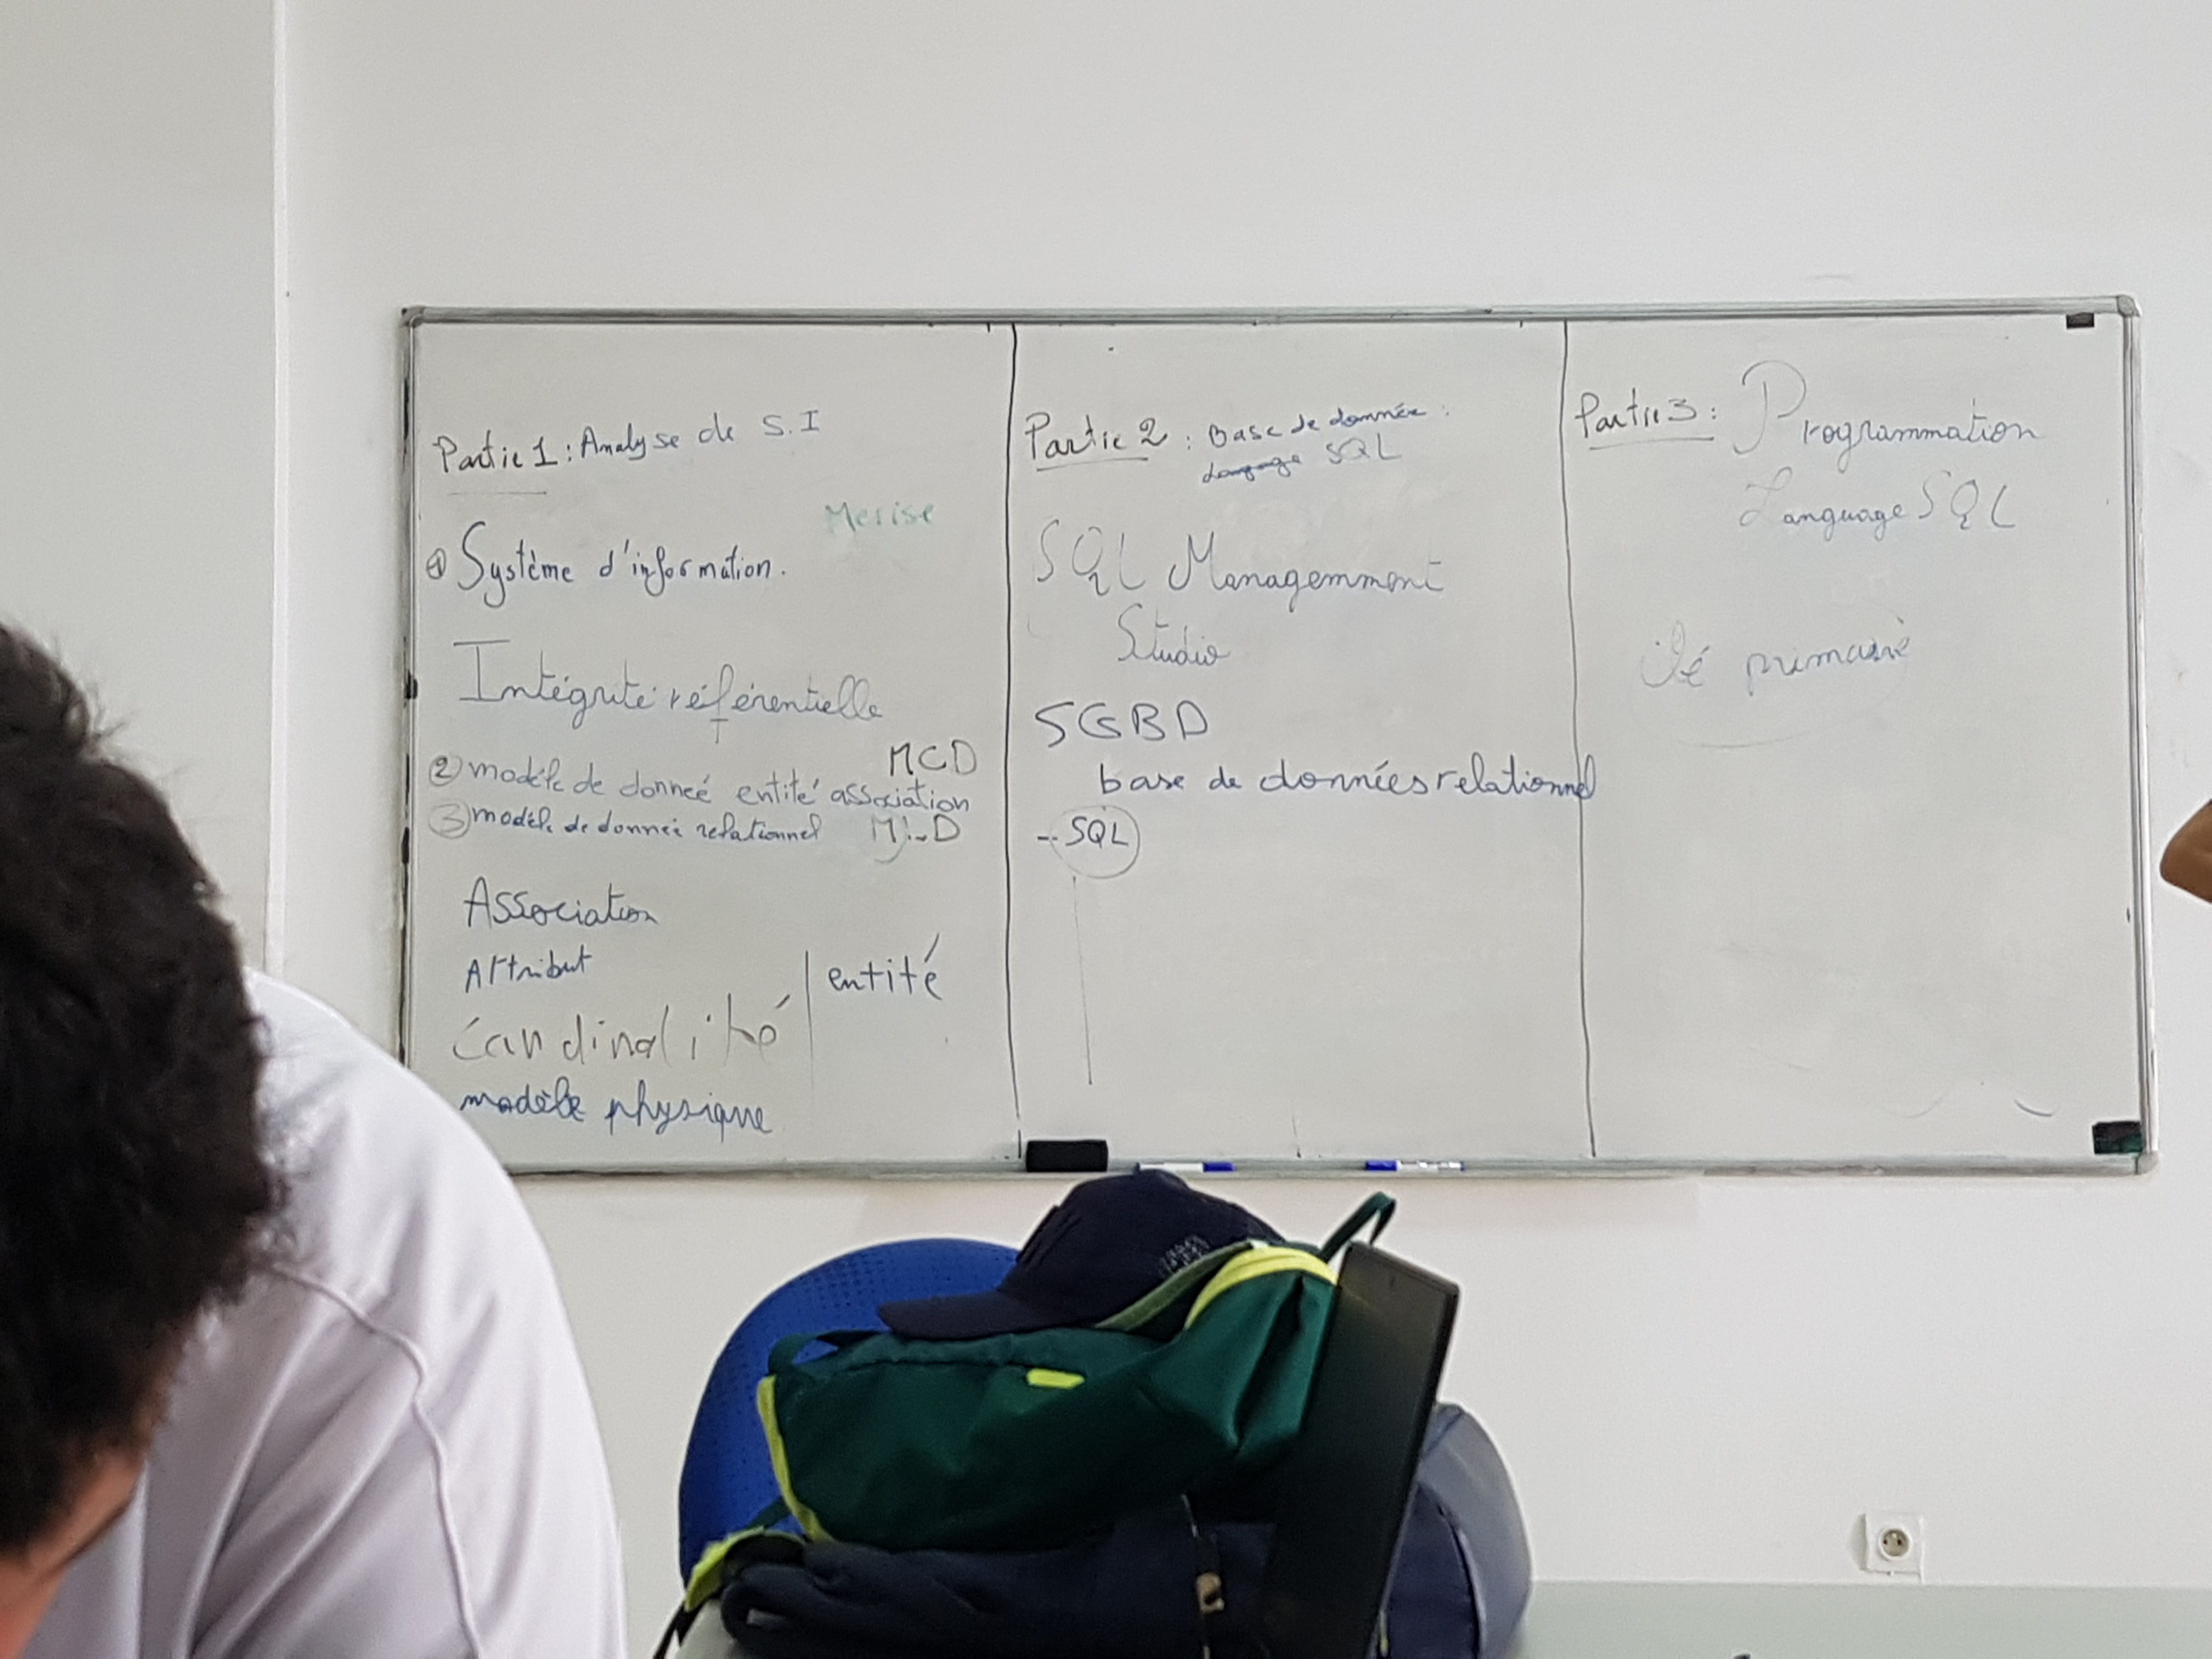 Partie 1 : Analyse de S.I
Merise
① Système d'information.
Intégrité référentielle
MCD
② modèle de donneé entité association
③ modèle de donnée relationnel MLD
Association
Attribut
entité
Cardinalité
modèle physique
Partie 2 : Base de donnée :
Language SQL
SQL Managemment
Studio
SGBD
base de données relationnel
- SQL
Partie 3 : Programmation
Language SQL
clé primaire